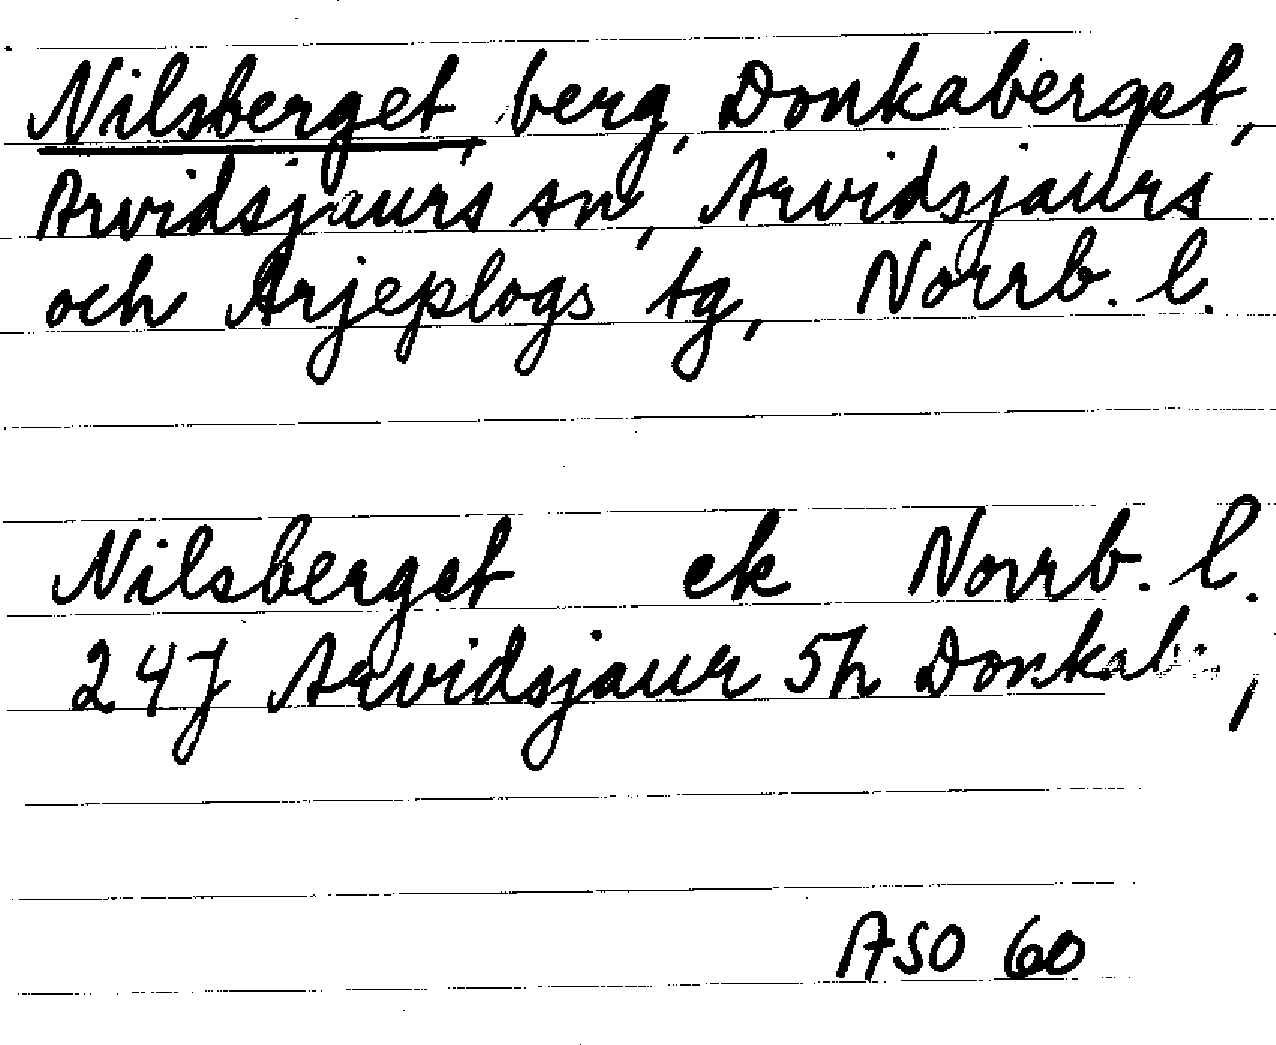 Nilsberget, berg, Donkaberget,
Arvidsjaurs sn, Arvidsjaurs
och Arjeplogs tg, Norrb. l.
Nilsberget ek Norrb. l.
24J Arvidsjaur 5h
ASO 60